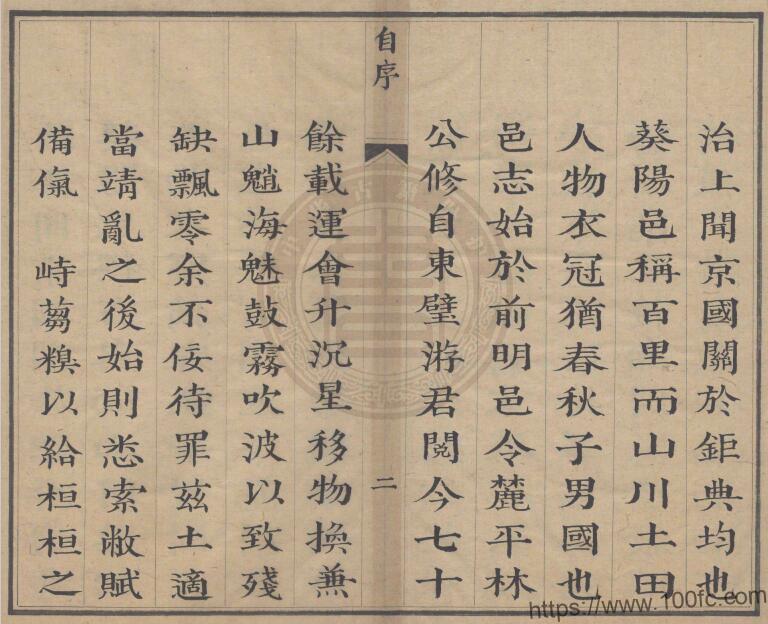 治上聞京國關於鉅典均也
葵陽邑稱百里而山川土田
人物衣冠猶春秋子男國也
邑志始於前明邑令麓平林
公修自東璧游君閱今七十
自序
二
餘載運會升沉星移物換兼
山魈海魅鼓霧吹波以致殘
缺飄零余不佞待罪茲土適
當靖亂之後始則悉索敝賦
備僟峙芻糗以給桓桓之
https://www.100fc.com